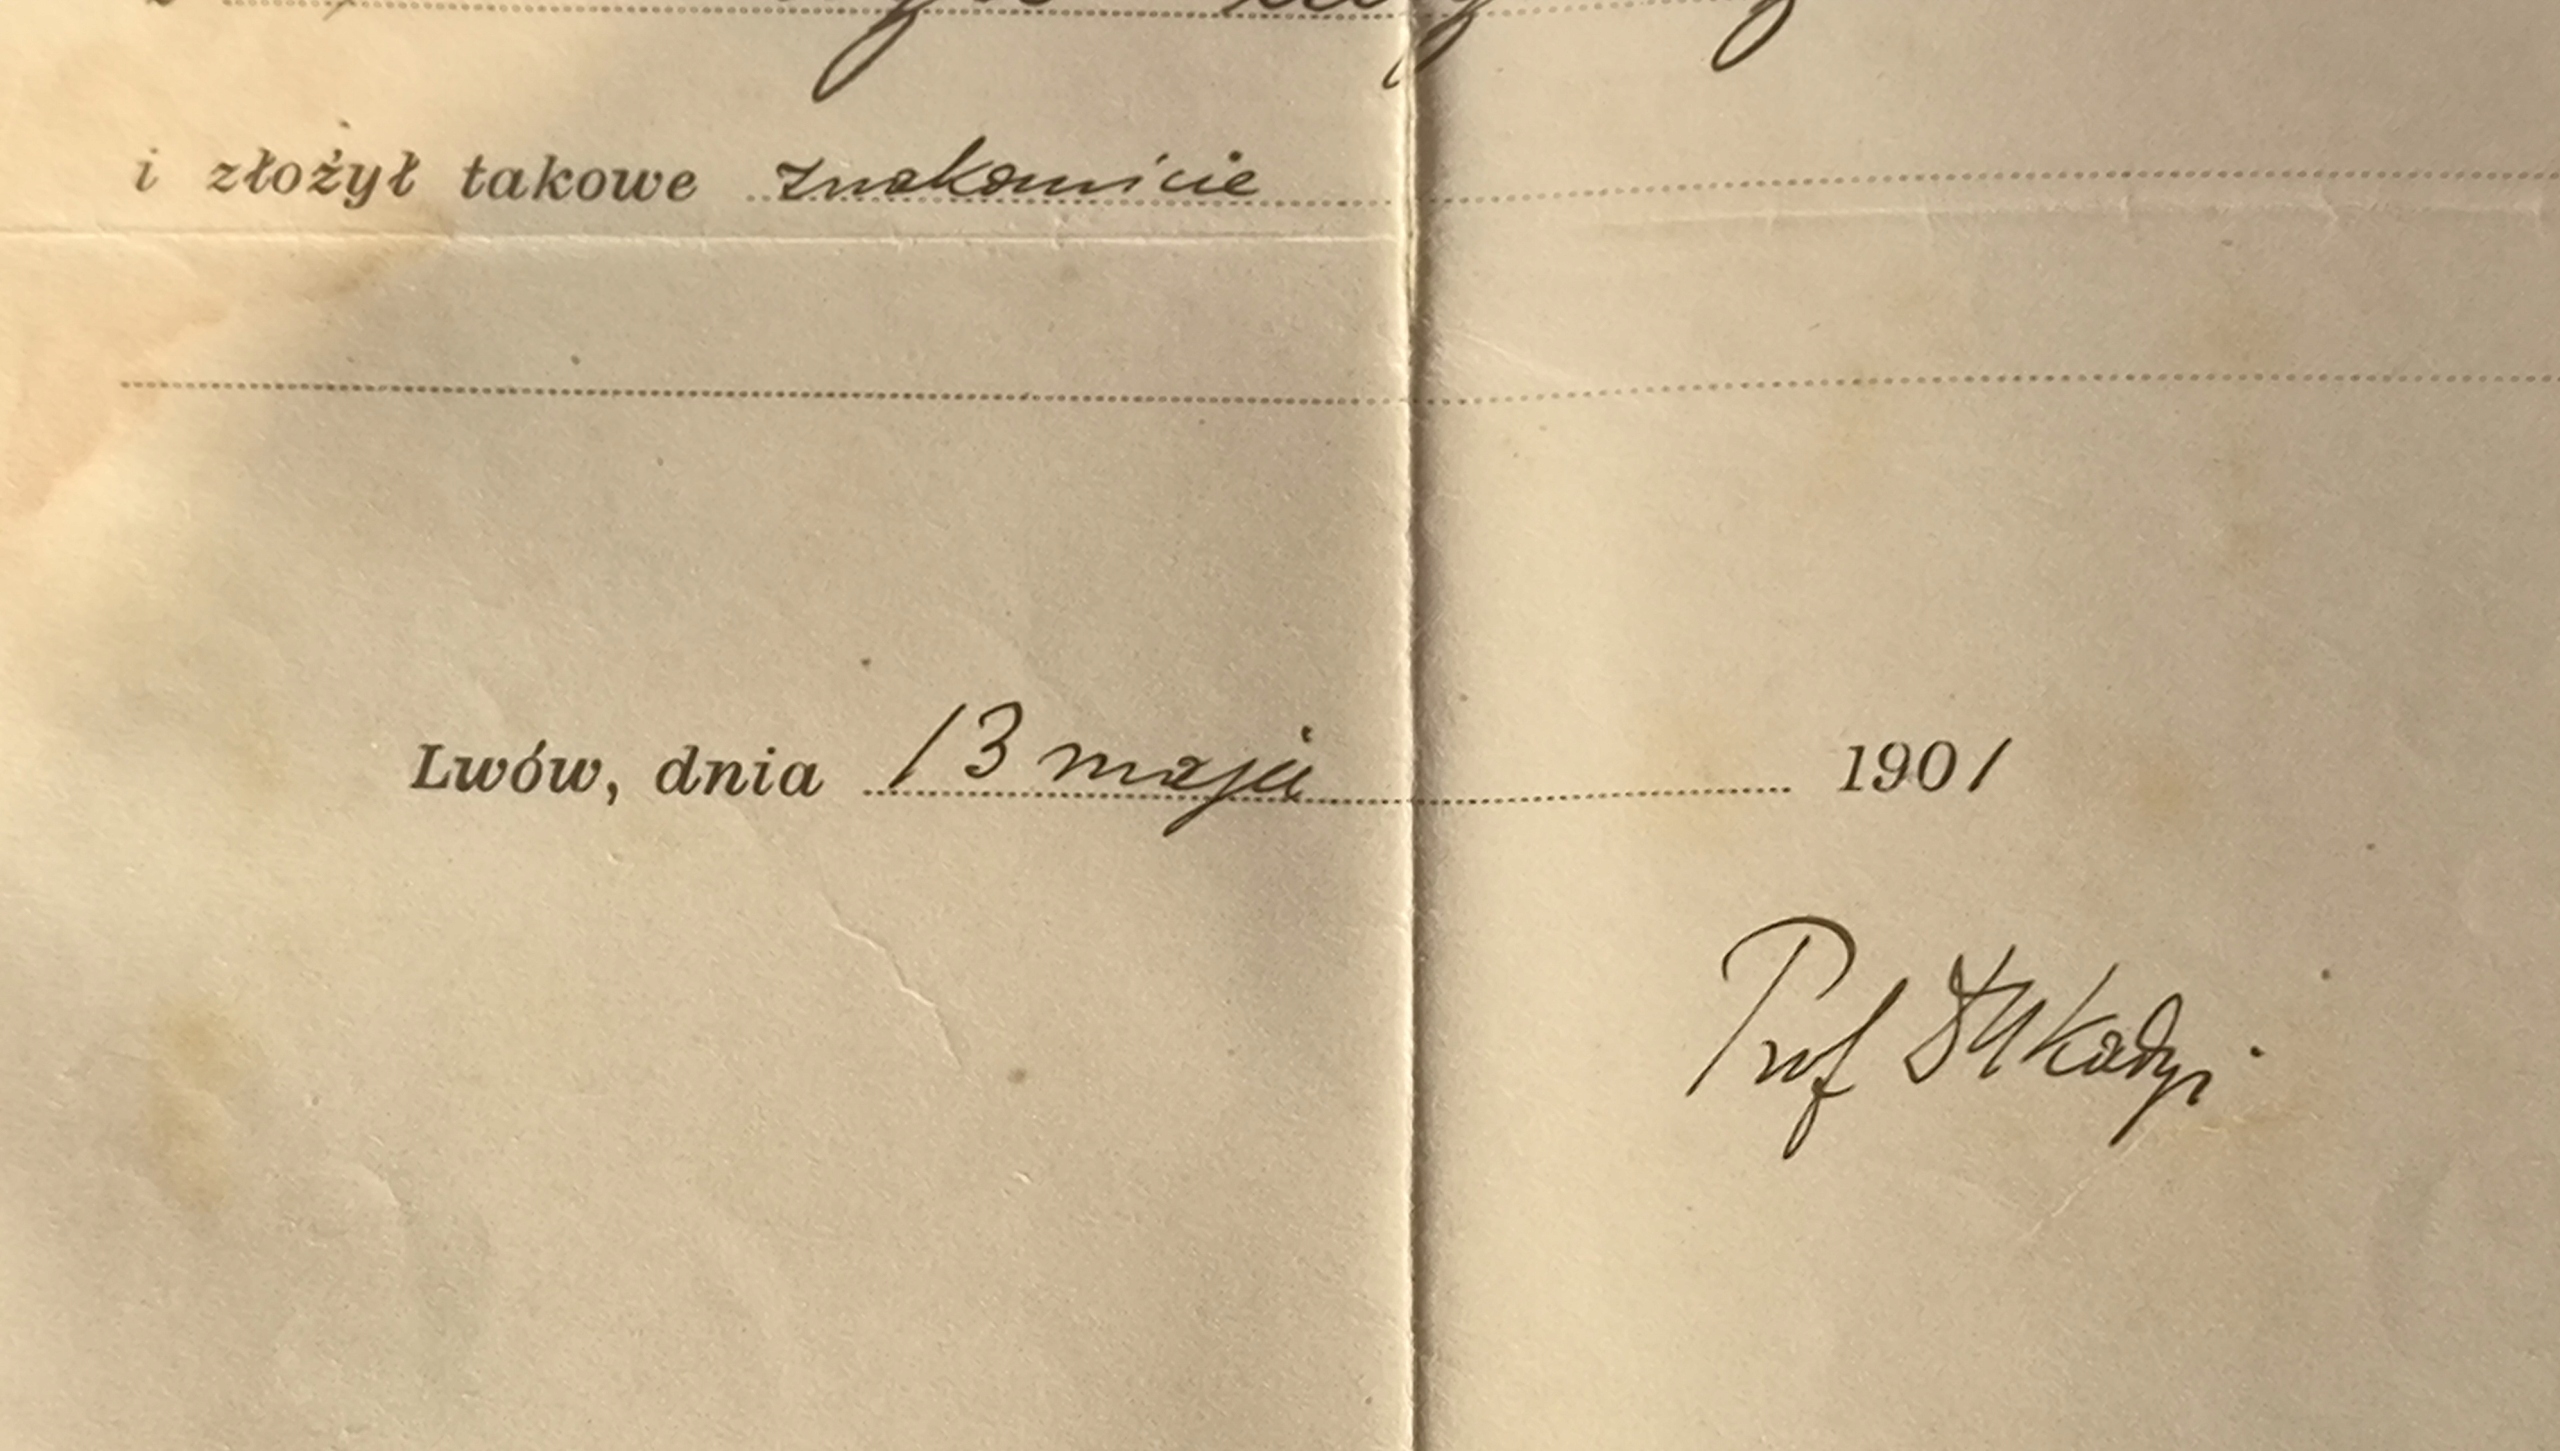 i złożył takowe znakomicie
Lwów, dnia 13 maja 1901
Prof Dr H Kadyi